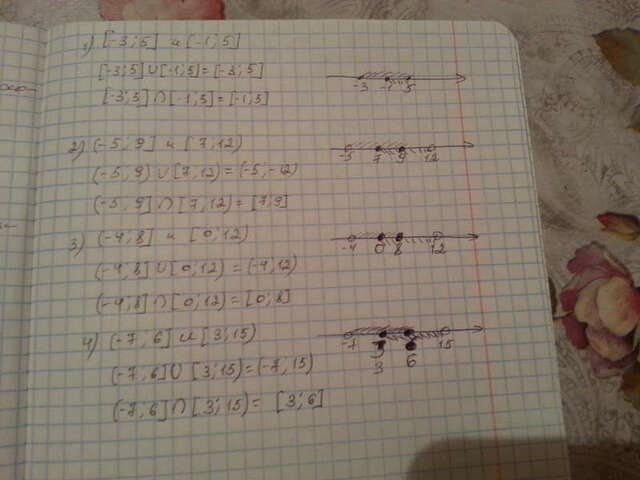 1) [-3; 5] и [-1; 5]
[-3; 5] ∪ [-1; 5] = [-3; 5]
[-3; 5] ∩ [-1; 5] = [-1; 5]
-3 -1 5
2) (-5; 9] и [7; 12)
(-5; 9) ∪ [7; 12) = (-5; -12)
(-5; 9] ∩ [7; 12) = [7; 9]
-5 7 9 12
3) (-4; 8] и [0; 12)
(-4; 8] ∪ [0; 12) = (-4; 12)
(-4; 8] ∩ [0; 12) = [0; 8]
-4 0 8 12
4) (-7; 6] и [3; 15)
(-7; 6] ∪ [3; 15) = (-7; 15)
(-7; 6] ∩ [3; 15) = [3; 6]
-7 15
3 6